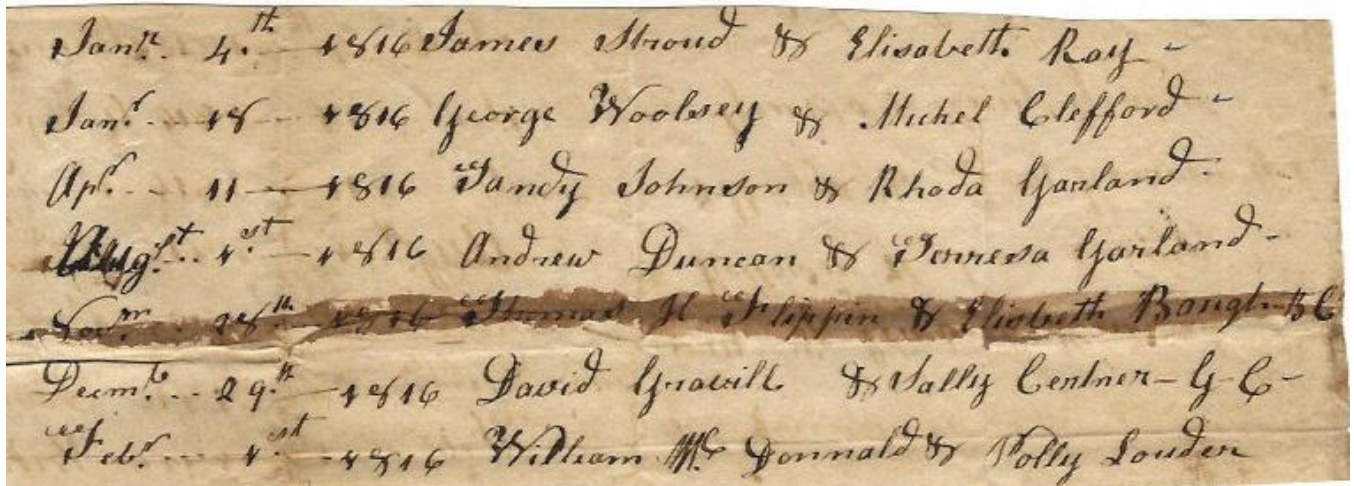 Janr. 4.th 1816 James Stroud & Elisabeth Ray -
Janr. 18 1816 George Woolsey & Michel Clefford -
Apr. 11 1816 Tandy Johnson & Rhoda Garland -
Augst. 1st 1816 Andrew Duncan & Terresa Garland -
Novm. 28th 1816 Thomas H Flippin & Elisbeth Baugh - B C
Decmb. 29th 1816 David Gravill & Sally Centner - G - C -
Febr. 1st 1816 William Mc Donnald & Polly Louden